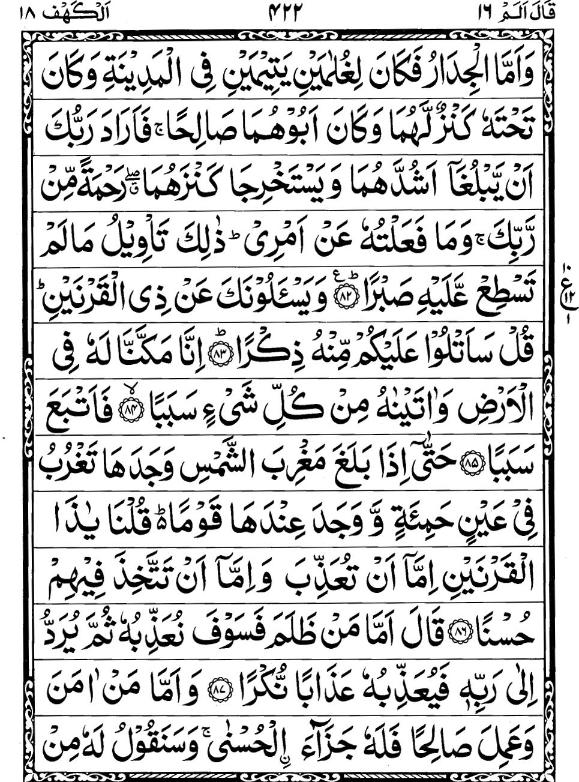 قَالَ اَلَمْ ۱۶ ۴۲۲ اَلْكَهْف ۱۸
وَاَمَّا الْجِدَارُ فَكَانَ لِغُلٰمَيْنِ يَتِيْمَيْنِ فِى الْمَدِيْنَةِ وَكَانَ
تَحْتَهٗ كَنْزٌ لَّهُمَا وَكَانَ اَبُوْهُمَا صَالِحًا ۚ فَاَرَادَ رَبُّكَ
اَنْ يَّبْلُغَاۤ اَشُدَّهُمَا وَيَسْتَخْرِجَا كَنْزَهُمَا ۖ ۗ رَحْمَةً مِّنْ
رَّبِّكَ ۚ وَمَا فَعَلْتُهٗ عَنْ اَمْرِىْ ؕ ذٰلِكَ تَاْوِيْلُ مَالَمْ
تَسْطِعْ عَّلَيْهِ صَبْرًا ؕ ﴿۸۲﴾ وَيَسْـَٔلُوْنَكَ عَنْ ذِى الْقَرْنَيْنِ ؕ
قُلْ سَاَتْلُوْا عَلَيْكُمْ مِّنْهُ ذِكْرًا ؕ ﴿۸۳﴾ اِنَّا مَكَّنَّا لَهٗ فِى
الْاَرْضِ وَاٰتَيْنٰهُ مِنْ كُلِّ شَىْءٍ سَبَبًا ۙ ﴿۸۴﴾ فَاَتْبَعَ
سَبَبًا ﴿۸۵﴾ حَتّٰىۤ اِذَا بَلَغَ مَغْرِبَ الشَّمْسِ وَجَدَهَا تَغْرُبُ
فِىْ عَيْنٍ حَمِئَةٍ وَّ وَجَدَ عِنْدَهَا قَوْمًا ؕ قُلْنَا يٰذَا
الْقَرْنَيْنِ اِمَّاۤ اَنْ تُعَذِّبَ وَاِمَّاۤ اَنْ تَتَّخِذَ فِيْهِمْ
حُسْنًا ﴿۸۶﴾ قَالَ اَمَّا مَنْ ظَلَمَ فَسَوْفَ نُعَذِّبُهٗ ثُمَّ يُرَدُّ
اِلٰى رَبِّهٖ فَيُعَذِّبُهٗ عَذَابًا نُّكْرًا ﴿۸۷﴾ وَاَمَّا مَنْ اٰمَنَ
وَعَمِلَ صَالِحًا فَلَهٗ جَزَآءَ اِۨلْحُسْنٰى ۚ وَسَنَقُوْلُ لَهٗ مِنْ
۱۰
ع
۱۲
۱